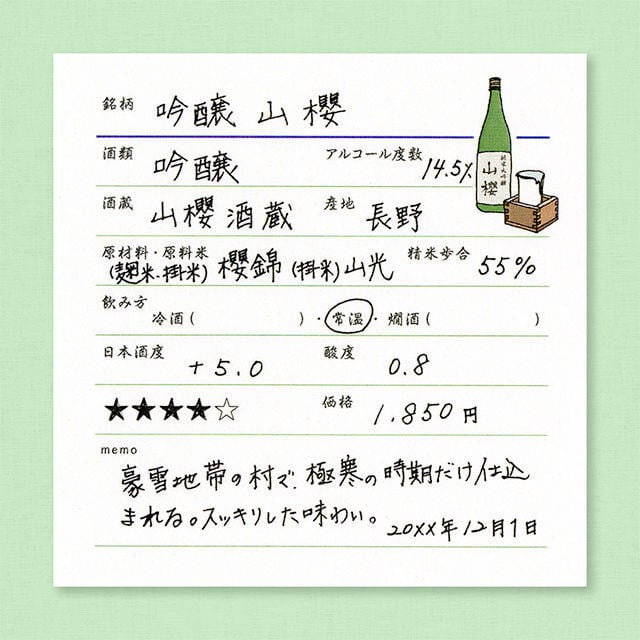 銘柄 吟醸 山櫻
酒類 吟醸 アルコール度数 14.5%
酒蔵 山櫻酒蔵 産地 長野
原材料・原料米 (麹米・掛米) 櫻錦 (掛米) 山光 精米歩合 55%
飲み方 冷酒( )・常温・燗酒( )
日本酒度 +5.0 酸度 0.8
★★★★☆ 価格 1.850円
memo
豪雪地帯の村で、極寒の時期だけ仕込
まれる。スッキリした味わい。 20XX年12月1日
純米大吟醸
山櫻